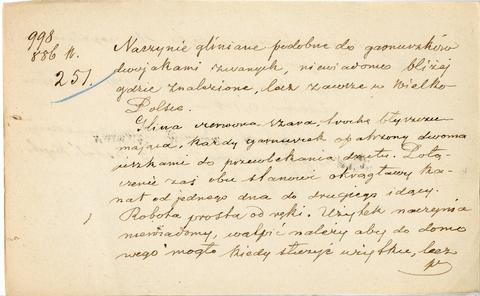 998
886 k.
251.
Naczynie gliniane podobne do garnuszków
dwojakami zwanych, niewiadomo bliżej
gdzie znalezione, lecz zawsze w Wielko-
Polsce.
Glina czerwono szara, trochę błyszczu
mająca, każdy garnuszek opatrzony dwoma
uszkami do przewlekania drutu. Połą-
czenie zaś obu stanowi okrągławy ka-
nał od jednego dna do drugiego idący.
Robota prosta od ręki. Użytek naczynia
niewiadomy, wątpić należy aby do domo
wego mogło kiedy służyć użytku, lecz